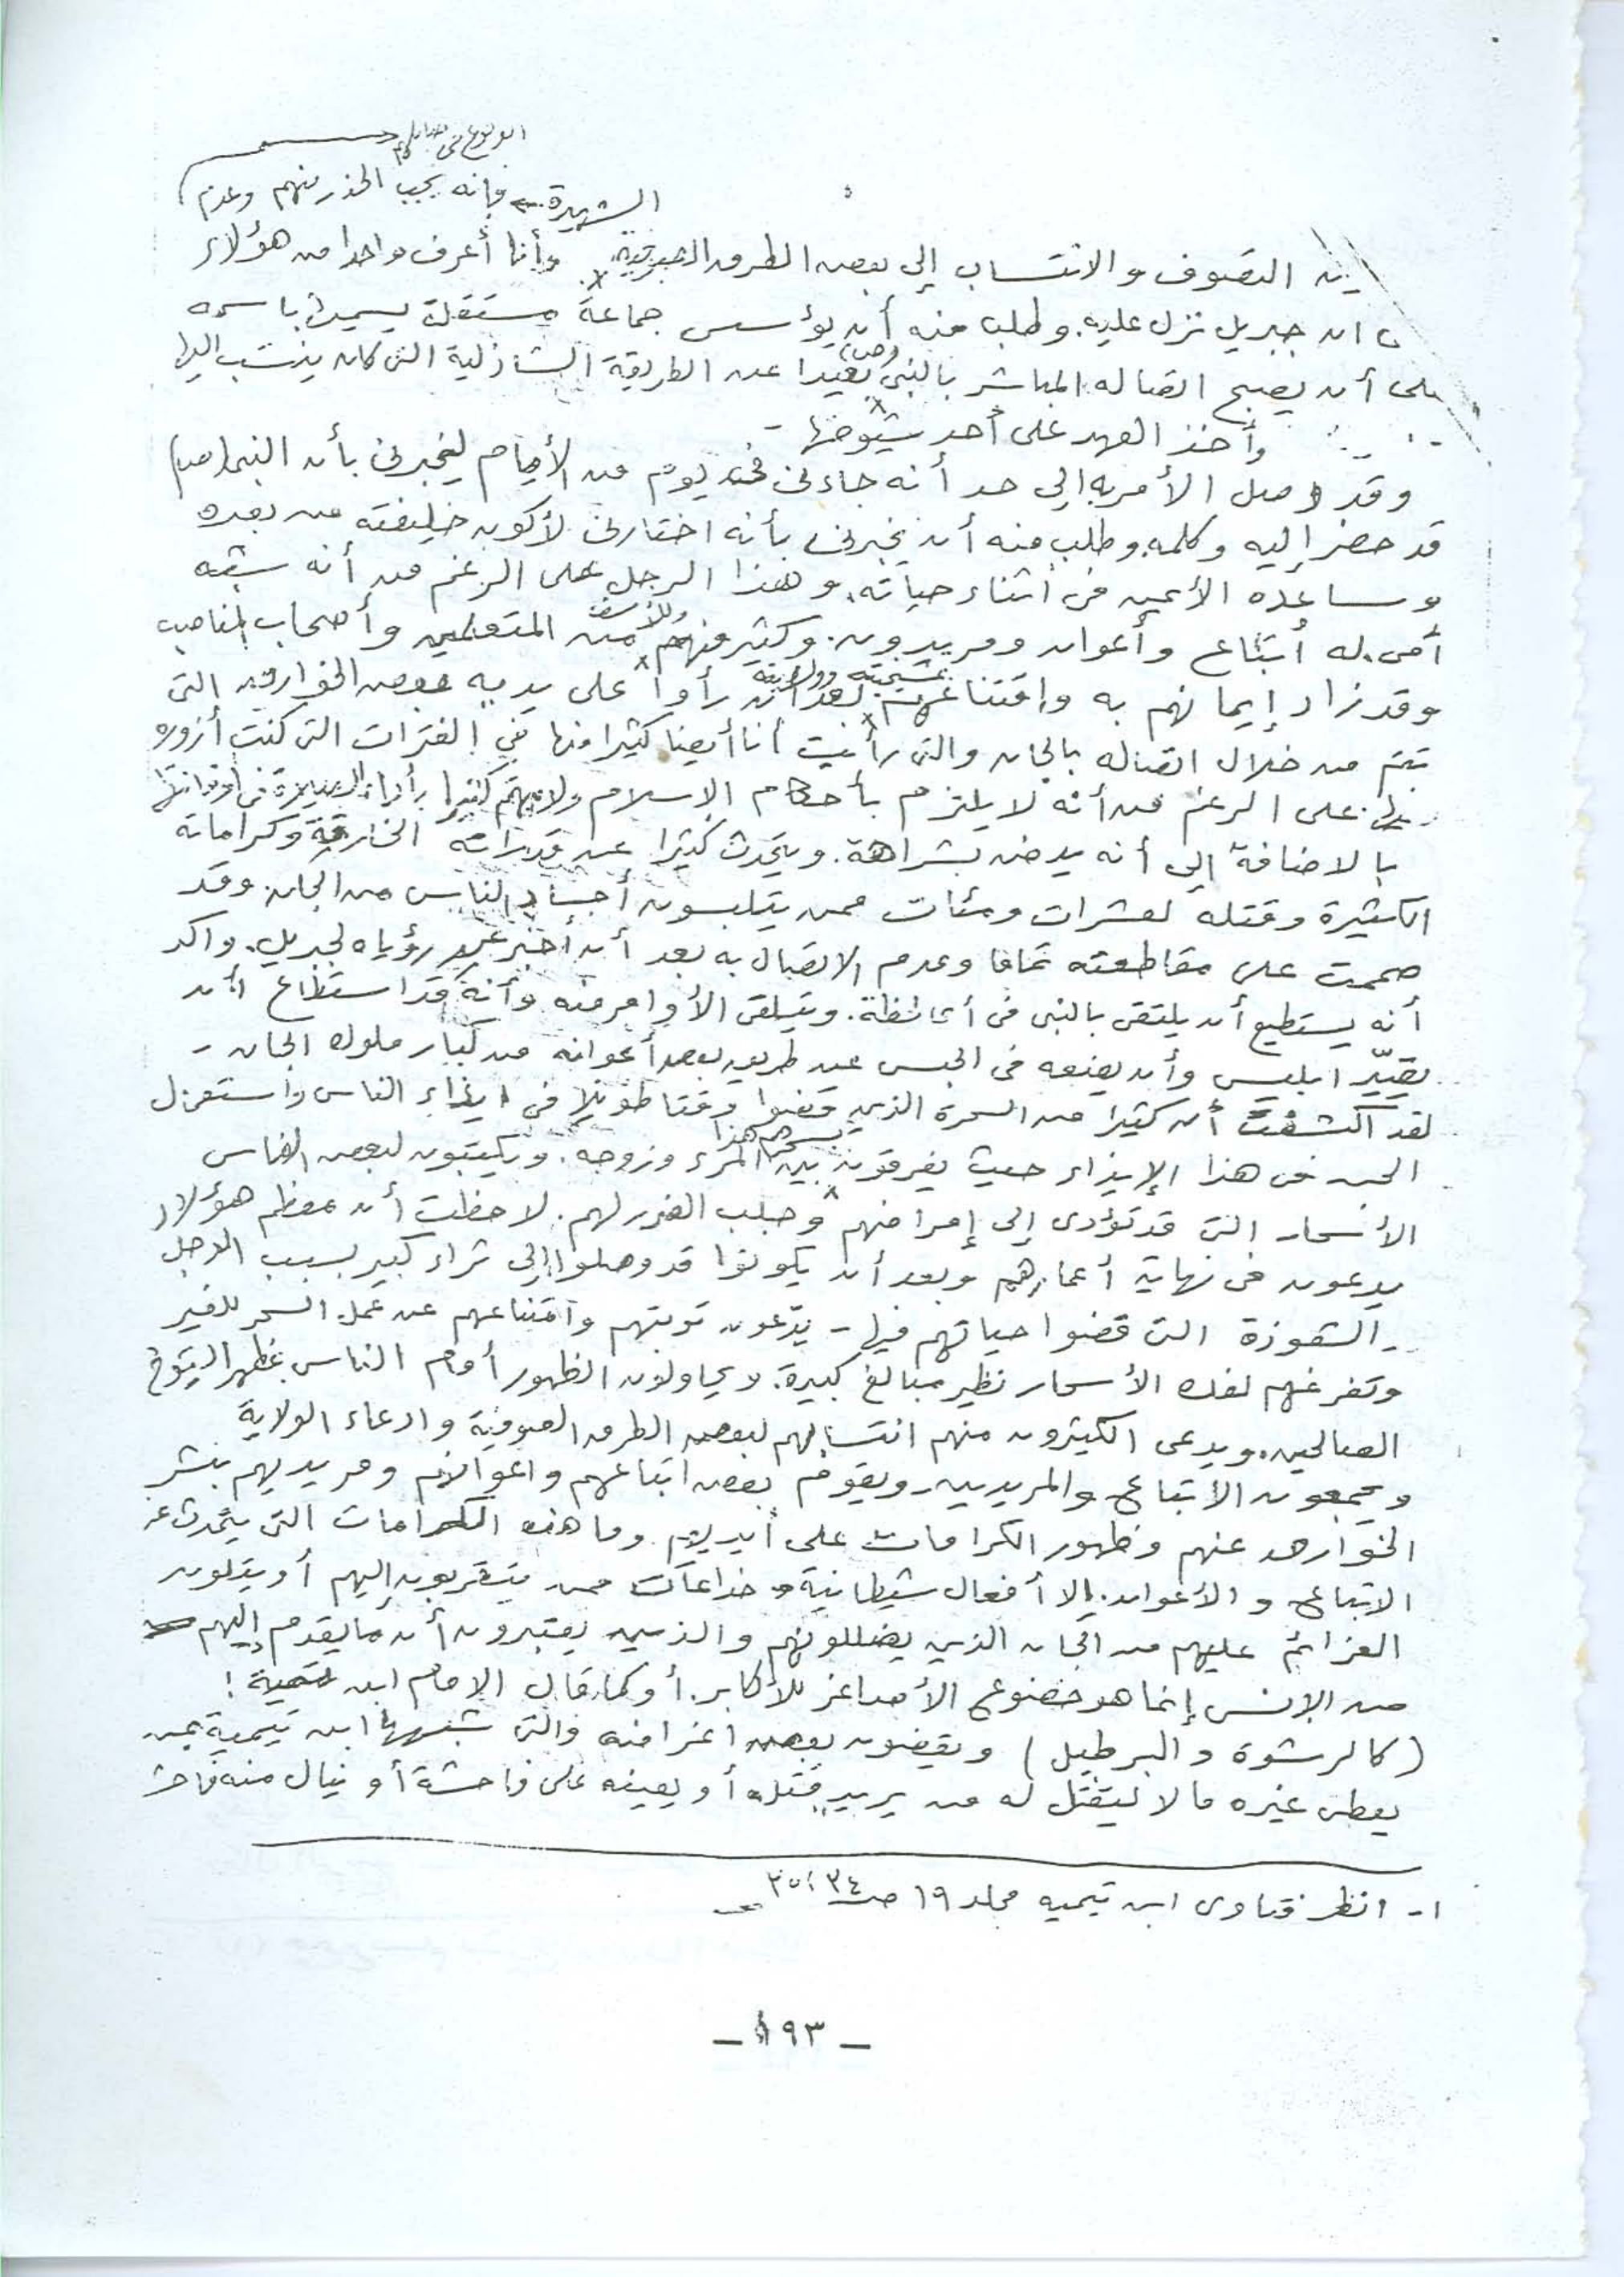 الوقوع في
الشهيرة. فإنه يجب الحذر منهم وعدم
التصوف والانتساب إلى بعض الطرق الصوفية. وأنا أعرف واحدا من هؤلاء
ان جبريل نزل عليه. وطلب منه أن يؤسس جماعة مستقلة يسميها باسمه
على أن يصبح اتصاله المباشر بالنبي (ص) بعيدا عن الطريقة الشاذلية التي كان ينتسب إليها
وأخذ العهد على أحد شيوخها -
وقد وصل الأمر به إلى حد أنه جاءني في يوم من الأيام ليخبرني بأن النبي (ص)
قد حضر إليه وكلمه. وطلب منه أن يخبرني بأنه اختارني لأكون خليفته من بعده
وساعده الأيمن في أثناء حياته. وهذا الرجل على الرغم من أنه شبه
أمي. له أتباع وأعوان ومريدون. وكثير منهم وللأسف من المتعلمين وأصحاب المناصب
وقد زاد إيمانهم به واقتناعهم بمشيخته وولايته بعد أن رأوا على يديه بعض الخوارق التي
تتم من خلال اتصاله بالجان والتي رأيت أنا أيضا كثيرا منها في الفترات التي كنت أزوره
على الرغم من أنه لا يلتزم بأحكام الإسلام ولا يهتم كثيرا بأداء الصلاة في أوقاتها
بالاضافة إلى أنه يدخن بشراهة. ويتحدث كثيرا عن قدراته الخارقة وكراماته
الكثيرة وقتله لعشرات ومئات ممن يتلبسون أجساد الناس من الجان. وقد
صممت على مقاطعته تماما وعدم الاتصال به بعد أن أخبرني عن رؤياه لجبريل. وأكد
أنه يستطيع أن يلتقي بالنبي في أي لحظة. ويتلقى الأوامر منه وأنه قد استطاع أن
يقيّد ابليس وأن يضعه في الحبس عن طريق بعض أعوانه من كبار ملوك الجان -
لقد اكتشفت أن كثيرا من السحرة الذين قضوا وقتا طويلا في ايذاء الناس واستغلال
الجن في هذا الإيذاء حيث يفرقون بسحرهم هذا بين المرء وزوجه. ويكتبون لبعض الناس
الأسحار التي قد تؤدي إلى إمراضهم وجلب الضرر لهم. لاحظت أن معظم هؤلاء
يدعون في نهاية أعمارهم وبعد أن يكونوا قد وصلوا إلى ثراء كبير بسبب الدجل
والشعوذة التي قضوا حياتهم فيها - يدّعون توبتهم وامتناعهم عن عمل السحر للغير
وتفرغهم لفك الأسحار نظير مبالغ كبيرة. ويحاولون الظهور أمام الناس بمظهر الشيوخ
الصالحين. ويدعى الكثيرون منهم انتسابهم لبعض الطرق الصوفية وادعاء الولاية
ويجمعون الأتباع والمريدين. ويقوم بعض اتباعهم وأعوانهم ومريديهم بنشر
الخوارق عنهم وظهور الكرامات على أيديهم. وما هذه الكرامات التي يتحدث عنها
الاتباع والأعوان. إلا أفعال شيطانية وخداعات ممن يتقربون إليهم أو يتلون
العزائم عليهم من الجان الذين يضللونهم والذين يعتبرون أن ما يقدم إليهم
من الإنس إنما هو خضوع الأصاغر للأكابر. أو كما قال الامام ابن تيمية!
(كالرشوة والبرطيل) ويقضون بعض أغراضه والتي شبهها ابن تيمية بمن
يعطي غيره مالا ليقتل له من يريد قتله أو يعينه على فاحشة أو ينال منه فاحشة
١- انظر فتاوى ابن تيميه مجلد ١٩ ص ٣٤، ٣٥
- ١٩٣ -